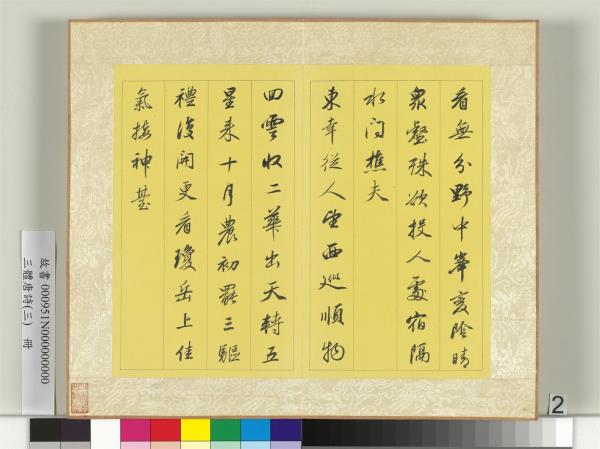 看無分野中峯變陰晴
衆壑殊欲投人處宿隔
水問樵夫
東幸從人望西巡順物
回雲收二華出天轉五
星來十月農初罷三驅
禮復開更看瓊岳上佳
氣接神臺
故書 000951N000000000
三體唐詩(三) 冊
2